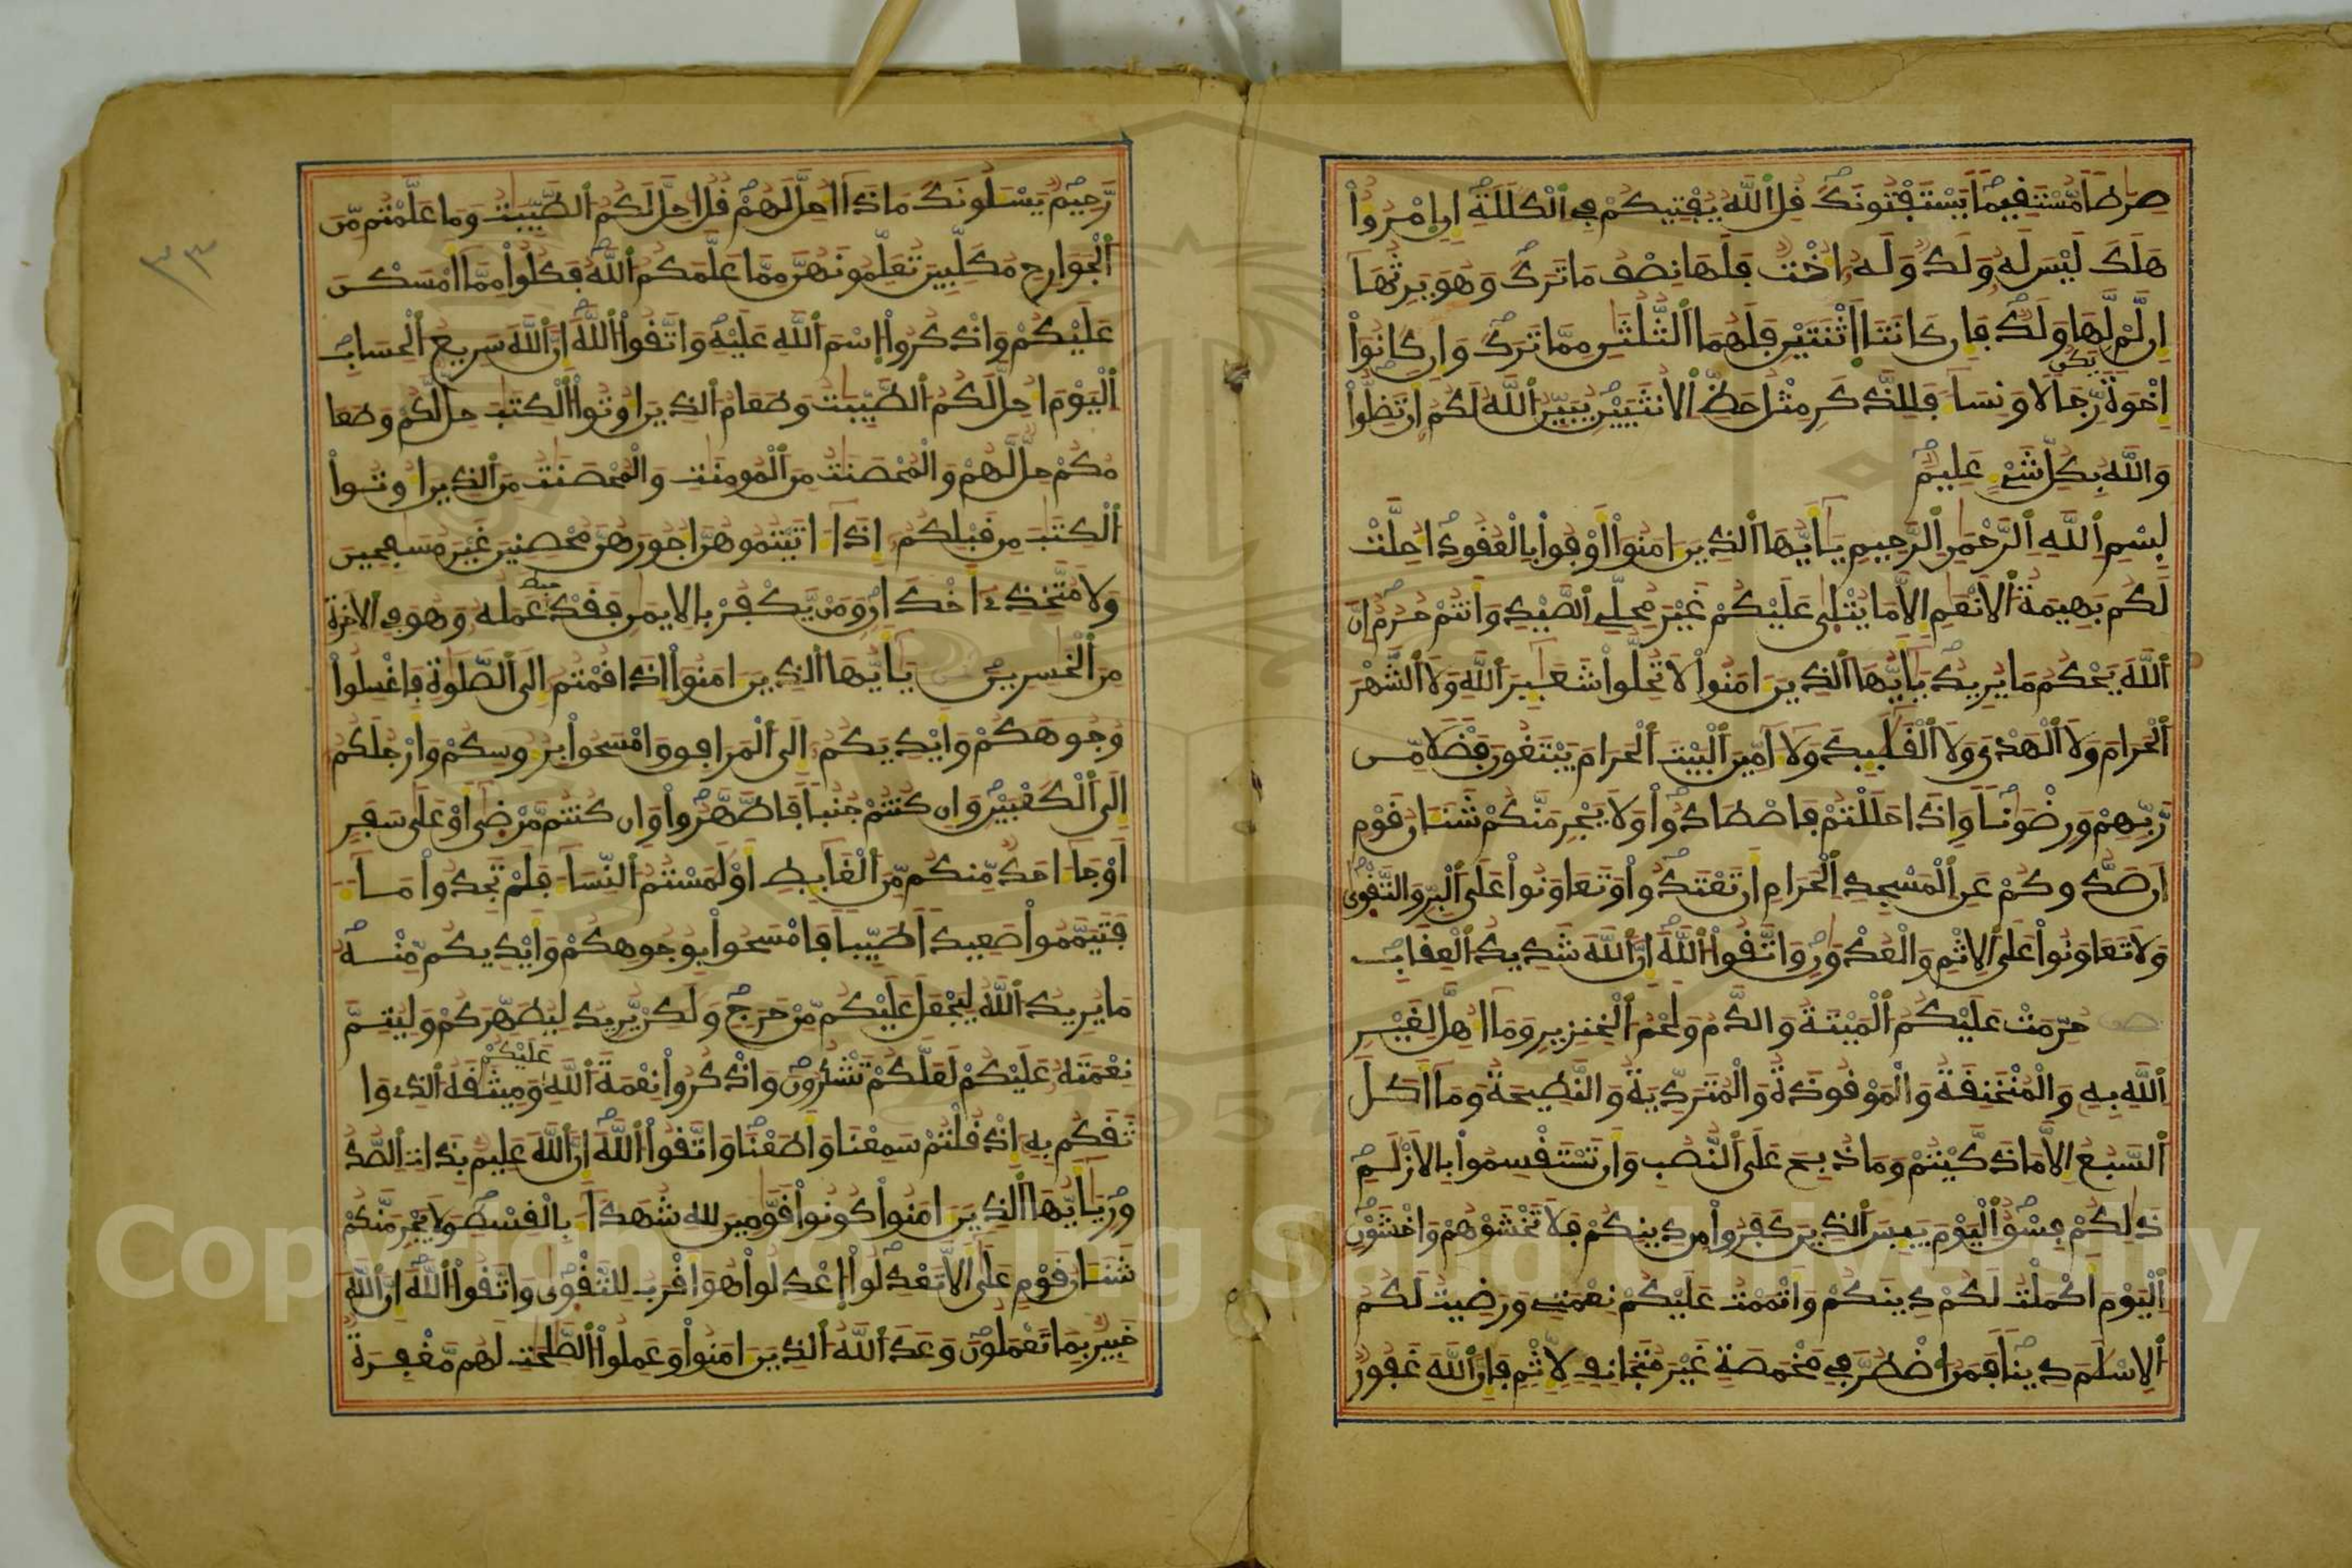 صِرَٰطاٗ مُّسْتَقِيماٗ يَسْتَفْتُونَكَ قُلِ اِللَّهُ يُفْتِيكُمْ فِے اِلْكَلَٰلَةِ إِنِ اِمْرُؤٌاْ
هَلَكَ لَيْسَ لَهُۥ وَلَدٞ وَلَهُۥٓ أُخْتٞ فَلَهَا نِصْفُ مَا تَرَكَ وَهُوَ يَرِثُهَآ
إِن لَّمْ يَكُن لَّهَا وَلَدٞ فَإِن كَانَتَا اَثْنَتَيْنِ فَلَهُمَا اَلثُّلُثَٰنِ مِمَّا تَرَكَ وَإِن كَانُوٓاْ
إِخْوَةٗ رِّجَالٗا وَنِسَآءٗ فَلِلذَّكَرِ مِثْلُ حَظِّ اِلُانثَيَيْنِ يُبَيِّنُ اُللَّهُ لَكُمُۥٓ أَن تَضِلُّواْ
وَاللَّهُ بِكُلِّ شَےْءٍ عَلِيمٌ
بِسْمِ اِللَّهِ اِلرَّحْمَٰنِ اِلرَّحِيمِ يَٰٓأَيُّهَا اَلذِينَ ءَامَنُوٓاْ أَوْفُواْ بِالْعُقُودِ أُحِلَّتْ
لَكُم بَهِيمَةُ اُلَانْعَٰمِ إِلَّا مَا يُتْلَىٰ عَلَيْكُمْ غَيْرَ مُحِلِّے اِلصَّيْدِ وَأَنتُمْ حُرُمٌ إِنَّ
اَللَّهَ يَحْكُمُ مَا يُرِيدُ يَٰٓأَيُّهَا اَلذِينَ ءَامَنُواْ لَا تُحِلُّواْ شَعَٰٓئِرَ اَللَّهِ وَلَا اَلشَّهْرَ
اَلْحَرَامَ وَلَا اَلْهَدْيَ وَلَا اَلْقَلَٰٓئِدَ وَلَآ ءَآمِّينَ اَلْبَيْتَ اَلْحَرَامَ يَبْتَغُونَ فَضْلٗا مِّن
رَّبِّهِمْ وَرِضْوَٰناٗ وَإِذَا حَلَلْتُمْ فَاصْطَادُواْ وَلَا يَجْرِمَنَّكُمْ شَنَـَٔانُ قَوْمٍ
أَن صَدُّوكُمْ عَنِ اِلْمَسْجِدِ اِلْحَرَامِ أَن تَعْتَدُواْ وَتَعَاوَنُواْ عَلَى اَلْبِرِّ وَالتَّقْوَىٰ
وَلَا تَعَاوَنُواْ عَلَى اَلِاثْمِ وَالْعُدْوَٰنِ وَاتَّقُواْ اُللَّهَ إِنَّ اَللَّهَ شَدِيدُ اُلْعِقَابِ
حُرِّمَتْ عَلَيْكُمُ اُلْمَيْتَةُ وَالدَّمُ وَلَحْمُ اُلْخِنزِيرِ وَمَآ أُهِلَّ لِغَيْرِ
اِللَّهِ بِهِۦ وَالْمُنْخَنِقَةُ وَالْمَوْقُوذَةُ وَالْمُتَرَدِّيَةُ وَالنَّطِيحَةُ وَمَآ أَكَلَ
اَلسَّبُعُ إِلَّا مَا ذَكَّيْتُمْ وَمَا ذُبِحَ عَلَى اَلنُّصُبِ وَأَن تَسْتَقْسِمُواْ بِالَازْلَٰمِ
ذَٰلِكُمْ فِسْقٌ اِلْيَوْمَ يَئِسَ اَلذِينَ كَفَرُواْ مِن دِينِكُمْ فَلَا تَخْشَوْهُمْ وَاخْشَوْنِ
اِلْيَوْمَ أَكْمَلْتُ لَكُمْ دِينَكُمْ وَأَتْمَمْتُ عَلَيْكُمْ نِعْمَتِے وَرَضِيتُ لَكُمُ
اُلِاسْلَٰمَ دِيناٗ فَمَنُ اُضْطُرَّ فِے مَخْمَصَةٍ غَيْرَ مُتَجَانِفٖ لِّإِثْمٖ فَإِنَّ اَللَّهَ غَفُورٞ
رَّحِيمٞ يَسْـَٔلُونَكَ مَاذَآ أُحِلَّ لَهُمْ قُلُ احِلَّ لَكُمُ اُلطَّيِّبَٰتُ وَمَا عَلَّمْتُم مِّنَ
اَلْجَوَارِحِ مُكَلِّبِينَ تُعَلِّمُونَهُنَّ مِمَّا عَلَّمَكُمُ اُللَّهُ فَكُلُواْ مِمَّآ أَمْسَكْنَ
عَلَيْكُمْ وَاذْكُرُواْ اُسْمَ اَللَّهِ عَلَيْهِ وَاتَّقُواْ اُللَّهَ إِنَّ اَللَّهَ سَرِيعُ اُلْحِسَابِ
اِلْيَوْمَ أُحِلَّ لَكُمُ اُلطَّيِّبَٰتُ وَطَعَامُ اُلذِينَ أُوتُواْ اُلْكِتَٰبَ حِلّٞ لَّكُمْ وَطَعَا
مُكُمْ حِلّٞ لَّهُمْ وَالْمُحْصَنَٰتُ مِنَ اَلْمُومِنَٰتِ وَالْمُحْصَنَٰتُ مِنَ اَلذِينَ أُوتُواْ
اُلْكِتَٰبَ مِن قَبْلِكُمُۥٓ إِذَآ ءَاتَيْتُمُوهُنَّ أُجُورَهُنَّ مُحْصِنِينَ غَيْرَ مُسَٰفِحِينَ
وَلَا مُتَّخِذِےٓ أَخْدَانٖ وَمَنْ يَّكْفُرْ بِالِايمَٰنِ فَقَدْ حَبِطَ عَمَلُهُۥ وَهُوَ فِے اِلَاخِرَةِ
مِنَ اَلْخَٰسِرِينَ يَٰٓأَيُّهَا اَلذِينَ ءَامَنُوٓاْ إِذَا قُمْتُمُۥٓ إِلَى اَلصَّلَوٰةِ فَاغْسِلُواْ
وُجُوهَكُمْ وَأَيْدِيَكُمُۥٓ إِلَى اَلْمَرَافِقِ وَامْسَحُواْ بِرُءُوسِكُمْ وَأَرْجُلَكُمُ
إِلَى اَلْكَعْبَيْنِ وَإِن كُنتُمْ جُنُباٗ فَاطَّهَّرُواْ وَإِن كُنتُم مَّرْضَىٰٓ أَوْ عَلَىٰ سَفَرٍ
اَوْ جَآءَ احَدٞ مِّنكُم مِّنَ اَلْغَآئِطِ أَوْ لَٰمَسْتُمُ اُلنِّسَآءَ فَلَمْ تَجِدُواْ مَآءٗ
فَتَيَمَّمُواْ صَعِيداٗ طَيِّباٗ فَامْسَحُواْ بِوُجُوهِكُمْ وَأَيْدِيكُم مِّنْهُ
مَا يُرِيدُ اُللَّهُ لِيَجْعَلَ عَلَيْكُم مِّنْ حَرَجٖ وَلَٰكِنْ يُّرِيدُ لِيُطَهِّرَكُمْ وَلِيُتِمَّ
نِعْمَتَهُۥ عَلَيْكُمْ لَعَلَّكُمْ تَشْكُرُونَ وَاذْكُرُواْ نِعْمَةَ اَللَّهِ عَلَيْكُمْ وَمِيثَٰقَهُ اُلذِے وَا
ثَقَكُم بِهِۦٓ إِذْ قُلْتُمْ سَمِعْنَا وَأَطَعْنَا وَاتَّقُواْ اُللَّهَ إِنَّ اَللَّهَ عَلِيمٌ بِذَاتِ اِلصُّدُ
ورِ يَٰٓأَيُّهَا اَلذِينَ ءَامَنُواْ كُونُواْ قَوَّٰمِينَ لِلهِ شُهَدَآءَ بِالْقِسْطِ وَلَا يَجْرِمَنَّكُمْ
شَنَـَٔانُ قَوْمٍ عَلَىٰٓ أَلَّا تَعْدِلُواْ اُعْدِلُواْ هُوَ أَقْرَبُ لِلتَّقْوَىٰ وَاتَّقُواْ اُللَّهَ إِنَّ اَللَّهَ
خَبِيرٌ بِمَا تَعْمَلُونَ وَعَدَ اَللَّهُ اُلذِينَ ءَامَنُواْ وَعَمِلُواْ اُلصَّٰلِحَٰتِ لَهُم مَّغْفِرَةٞ
Copyright © King Saud University
1957